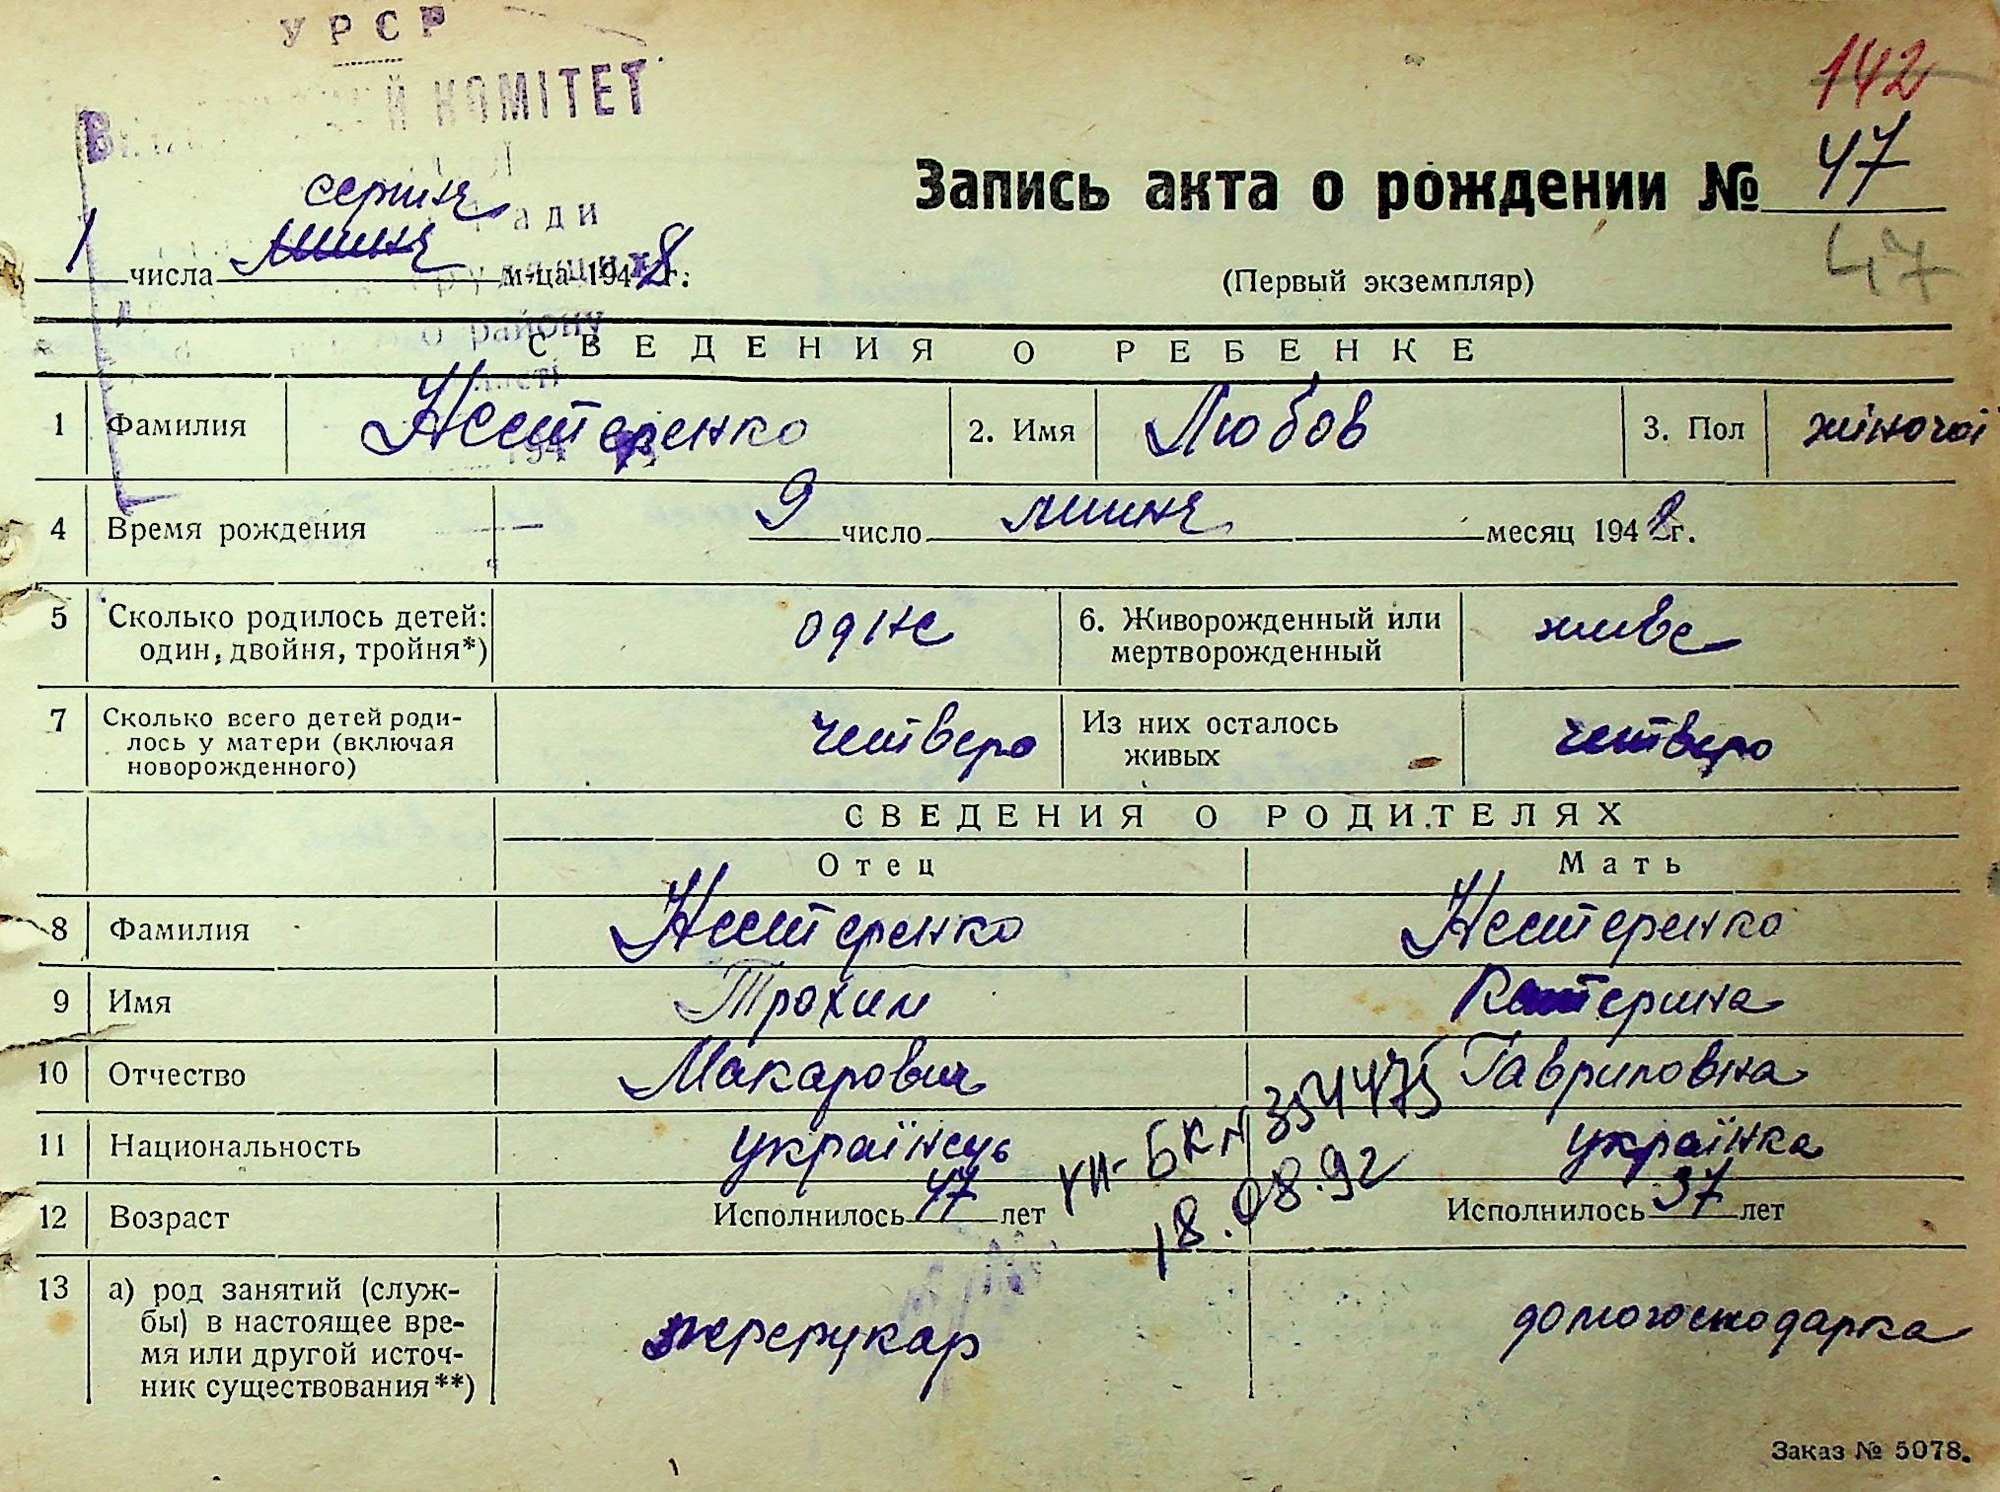 УРСР
КОМІТЕТ
142
Запись акта о рождении № 47
серпня
ради
1 числа липня м-ца 1948 г.
(Первый экземпляр)
47
району
СВЕДЕНИЯ О РЕБЕНКЕ
1 Фамилия Нестеренко 2. Имя Любов 3. Пол жіночої
4 Время рождения — 9 число липня месяц 1948 г.
5 Сколько родилось детей: одне 6. Живорожденный или живе
один, двойня, тройня*) мертворожденный
7 Сколько всего детей роди- четверо Из них осталось четверо
лось у матери (включая живых
новорожденного)
СВЕДЕНИЯ О РОДИТЕЛЯХ
Отец Мать
8 Фамилия Нестеренко Нестеренко
9 Имя Трохим Катерина
10 Отчество Макарович Гавриловна
11 Национальность українець українка
УП-БК № 354475
18.08.92
12 Возраст Исполнилось 47 лет Исполнилось 37 лет
13 а) род занятий (служ- перукар домогосподарка
бы) в настоящее вре-
мя или другой источ-
ник существования**)
Заказ № 5078.